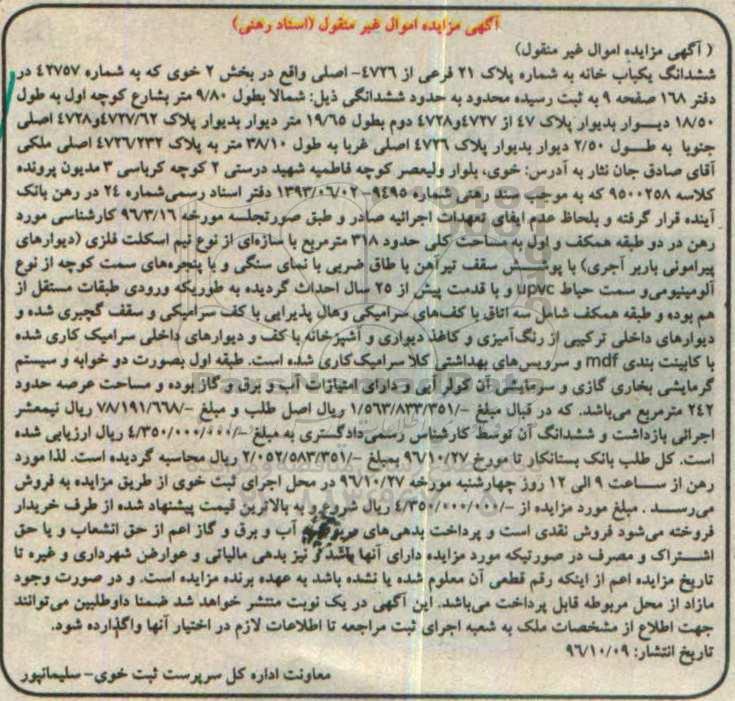 آگهی مزایده اموال غیر منقول (اسناد رهنی)
( آگهی مزایده اموال غیر منقول)
ششدانگ یکباب خانه به شماره پلاک ۲۱ فرعی از ۴۷۲۶- اصلی واقع در بخش ۲ خوی که به شماره ۴۲۷۵۷ در
دفتر ۱۶۸ صفحه ۹ به ثبت رسیده محدود به حدود ششدانگی ذیل: شمالا بطول ۹/۸۰ متر بشارع کوچه اول به طول
۱۸/۵۰ دیـــوار بدیوار پلاک ۴۷ از ۴۷۲۷و۴۷۲۸ دوم بطول ۱۹/۶۵ متر دیوار بدیوار پلاک ۴۷۲۷/۶۲و۴۷۲۸ اصلی
جنوبا به طـــول ۲/۵۰ دیوار بدیوار پلاک ۴۷۲۶ اصلی غربا به طول ۳۸/۱۰ متر به پلاک ۴۷۲۶/۲۳۲ اصلی ملکی
آقای صادق جان نثار به آدرس: خوی، بلوار ولیعصر کوچه فاطمیه شهید درستی ۲ کوچه کرباسی ۳ مدیون پرونده
کلاسه ۹۵۰۰۲۵۸ که به موجب سند رهنی شماره ۹۴۹۵- ۱۳۹۳/۰۶/۰۲ دفتر اسناد رسمی‌شماره ۲۴ در رهن بانک
آینده قرار گرفته و بلحاظ عدم ایفای تعهدات اجرائیه صادر و طبق صورتجلسه مورخه ۹۶/۳/۱۶ کارشناسی مورد
رهن در دو طبقه همکف و اول به مساحت کلی حدود ۳۱۸ مترمربع با سازه‌ای از نوع نیم اسکلت فلزی (دیوارهای
پیرامونی باربر آجری) با پوشـــش سقف تیرآهن با طاق ضربی با نمای سنگی و با پنجره‌های سمت کوچه از نوع
آلومینیومی‌و سمت حیاط upvc و با قدمت پیش از ۲۵ سال احداث گردیده به طوریکه ورودی طبقات مستقل از
هم بوده و طبقه همکف شامل سه اتاق با کف‌های سرامیکی وهال پذیرایی با کف سرامیکی و سقف گچبری شده و
دیوارهای داخلی ترکیبی از رنگ‌آمیزی و کاغذ دیواری و آشپزخانه با کف و دیوارهای داخلی سرامیک کاری شده
با کابینت بندی mdf و سرویس‌های بهداشتی کلا سرامیک‌کاری شده است. طبقه اول بصورت دو خوابه و سیستم
گرمایشی بخاری گازی و سرمایشی آن کولر آبی و دارای امتیازات آب و برق و گاز بوده و مساحت عرصه حدود
۲۴۲ مترمربع می‌باشد. که در قبال مبلغ -/۱/۵۶۳/۸۳۳/۳۵۱ ریال اصل طلب و مبلغ -/۷۸/۱۹۱/۶۶۸ ریال نیمعشر
اجرائی بازداشت و ششدانگ آن توسط کارشناس رسمی‌دادگستری به مبلغ -/۴/۳۵۰/۰۰۰/۰۰۰ ریال ارزیابی شده
است. کل طلب بانک بستانکار تا مورخ ۹۶/۱۰/۲۷ بمبلغ -/۲/۰۵۲/۵۸۳/۳۵۱ ریال محاسبه گردیده است. لذا مورد
رهن از ســاعت ۹ الی ۱۲ روز چهارشنبه مورخه ۹۶/۱۰/۲۷ در محل اجرای ثبت خوی از طریق مزایده به فروش
می‌رســـد . مبلغ مورد مزایده از -/۴/۳۵۰/۰۰۰/۰۰۰ ریال شروع و به بالاترین قیمت پیشنهاد شده از طرف خریدار
فروخته می‌شود فروش نقدی است و پرداخت بدهی‌های مربوط به آب و برق و گاز اعم از حق انشعاب و یا حق
اشـــتراک و مصرف در صورتیکه مورد مزایده دارای آنها باشد و نیز بدهی مالیاتی و عوارض شهرداری و غیره تا
تاریخ مزایده اعم از اینکه رقم قطعی آن معلوم شده یا نشده باشد به عهده برنده مزایده است. و در صورت وجود
مازاد از محل مربوطه قابل پرداخت می‌باشد. این آگهی در یک نوبت منتشر خواهد شد ضمنا داوطلبین می‌توانند
جهت اطلاع از مشخصات ملک به شعبه اجرای ثبت مراجعه تا اطلاعات لازم در اختیار آنها واگذارده شود.
تاریخ انتشار: ۹۶/۱۰/۰۹
معاونت اداره کل سرپرست ثبت خوی- سلیمانپور